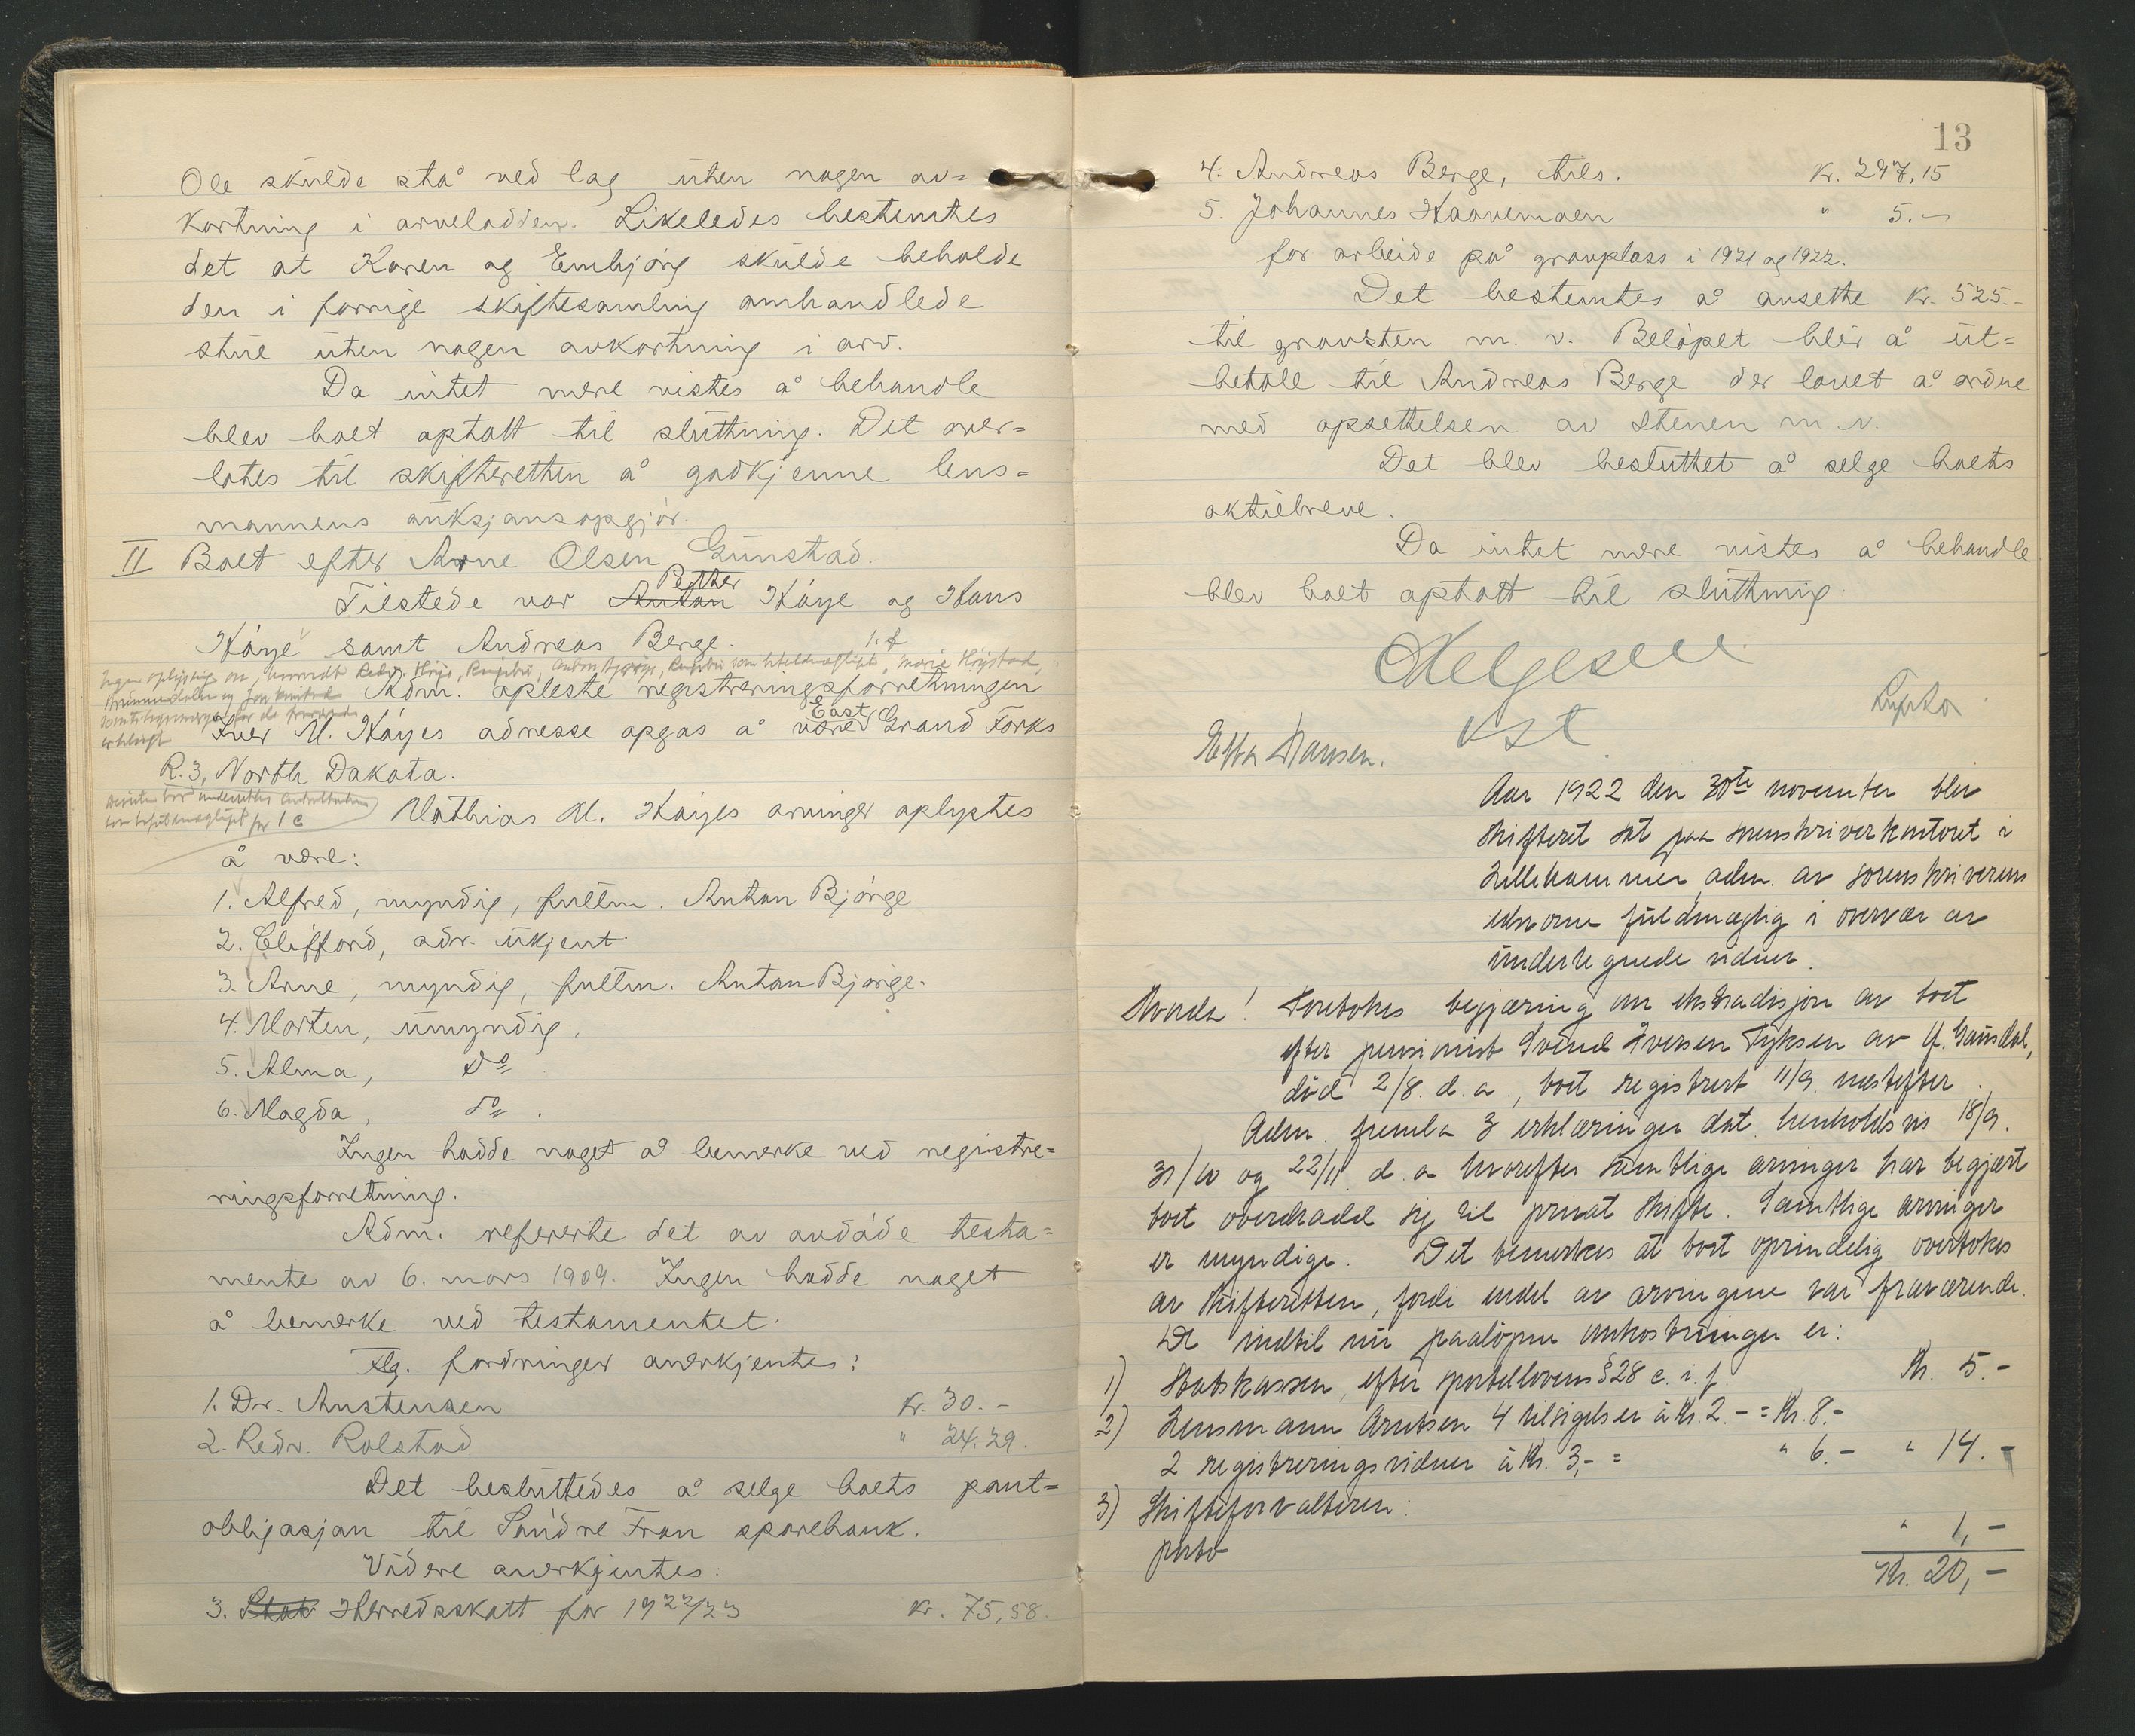 Ole skulde stå ved lag uten nogen av=
kortning i arvelodden. Likeledes bestemtes
det at Karen og Embjörg skulde beholde
den i forrige skiftesamling omhandlede
stue uten nogen avkortning i arv.
Da intet mere vistes å behandle
blev boet optatt til sluttning. Det over=
lotes til skifteretten å godkjenne lens=
mannens auksjonsopgjör.
II Boet efter Arne Olsen Gunstad.
Tilstede var Anton Petter Höye og Hans
Höye samt Andreas Berge. 1. f
Adm. opleste registreringsforretningen
Iver M. Höyes adresse opgas å være East Grand Forks
R. 3, North Dakota.
Mathias M. Höyes arvinger oplystes
å være:
1. Alfred, myndig, fullm. Anton Bjórge
2. Clifford, adr. ukjent
3. Arne, myndig, fullm. Anton Bjorge.
4. Morten, umyndig.
5. Alma, Do
6. Magda, do.
Ingen hadde noget å bemerke ved registre=
ringsforretning.
Adm. refererte det av avdöde testa=
mente av 6. mars 1909. Ingen hadde noget
å bemerke ved testamentet.
Flg. fordringer anerkjentes:
1. Dr. Austensen kr. 30.-
2. Redv. Rolstad " 24.29.
Det besluttedes å selge boets pant=
obligasjon til Söndre Fron sparebank.
Videre anerkjentes:
3. Skatt Herredsskatt for 1922/23 kr. 75,58.
13
4. Andreas Berge, tils. kr. 297,15
5. Johannes Haavemoen " 5.-
for arbeide på gravplass i 1921 og 1922.
Det bestemtes å ansette kr. 525.-
til gravsten m. v. Belöpet blir å ut=
betale til Andreas Berge der lovet å ordne
med opsettelsen av stenen m. v.
Det blev besluttet å selge boets
aktiebreve.
Da intet mere vistes å behandle
blev boet optatt til sluttning.
Helgesen
kst
Hansen.
Aar 1922 den 30te november blev
skifteret sat paa sorenskriverkontoret i
Lillehammer adm. av sorenskriverens
edsvorne fuldmægtig i overvær av
undertegnede vidner.
Hvorda! Foretokes begjæring om ekstradisjon av boet
efter pensionist Svend Iversen Fyksen av Ö. Gausdal,
död 2/8. d. a., boet registrert 11/9. næstefter.
Adm. fremla 3 erklæringer dat. henholdsvis 18/9.
31/10 og 22/11. d. a hvorefter samtlige arvinger har begjært
boet overdradd sig til privat skifte. Samtlige arvinger
er myndige. Det bemerkes at boet oprindelig overtokes
av skifteretten, fordi endel av arvingene var fraværende.
De indtil nu paalöpne omkostninger er:
1) Statskassen, efter sportellovens § 28 c. i. f. Kr. 5.-
2) Lensmann Arntsen 4 tilsigelser à Kr. 2.- = Kr. 8.-
2 registreringsvidner à Kr. 3,- = " 6.- " 14.-
3) Skifteforvalteren:
porto " 1,-
Kr. 20,-